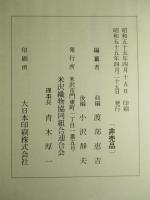 昭和五十五年四月十五日 印刷
昭和五十五年四月二十五日 発行
(非売品)
編纂者
前編 渡部恵吉
後編 小沢静夫
発行所 米沢市門東町一丁目一番
米沢織物協同組合連合会
理事長 青木厚一
印刷所 大日本印刷株式会社